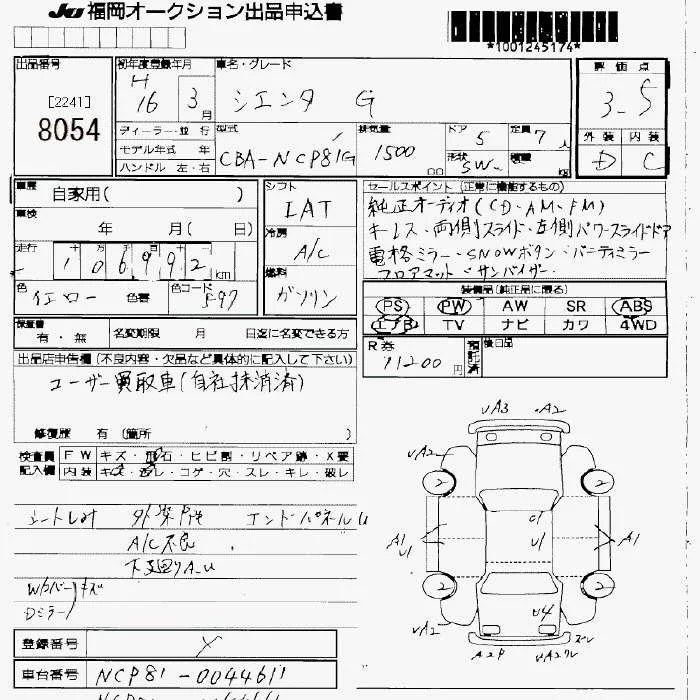 JU 福岡オークション出品申込書
*1001245174*
出品番号 初年度登録年月 車名・グレード 評価点
[2241] H 16 3月 シエンタ G 3.5
8054
ディーラー・並行 型式 排気量 ドア 定員 外装 内装
モデル年式 年 CBA-NCP81G 1500 cc 5 7人 D C
ハンドル 左・右 形状 SW 積載
車歴 自家用( ) シフト セールスポイント(正常に機能するもの)
車検 年 月( 日) IAT 純正オーディオ(CD・AM・FM)
冷房 キーレス・両側スライド・左側パワースライドドア
走行 106992 km A/C 電格ミラー・SNOWボタン・バニティミラー
燃料 フロアマット・サンバイザー
色 イエロー 色替 色コード 5-97 ガソリン
装備品(純正品に限る)
PS PW AW SR ABS
エアB TV ナビ カワ 4WD
保証書 有・無 名変期限 月 日迄に名変できる方
R券 11200円 預託済 後日品
出品店申告欄(不良内容・欠品など具体的に記入して下さい)
ユーザー買取車(自社抹消済)
修復歴 有(箇所 )
検査員 FW キズ・飛石・ヒビ割・リペア跡・X要
記入欄 内装 キズ・汚レ・コゲ・穴・スレ・キレ・破レ
エンドパネルU
A/C不良
下廻りA.U
キズ
Dミラー
UA3 A2
UA2
2 2
A1 U1 U1 A1
2 2
U4
UA2
A2P UA2
登録番号
車台番号 NCP81-0044611